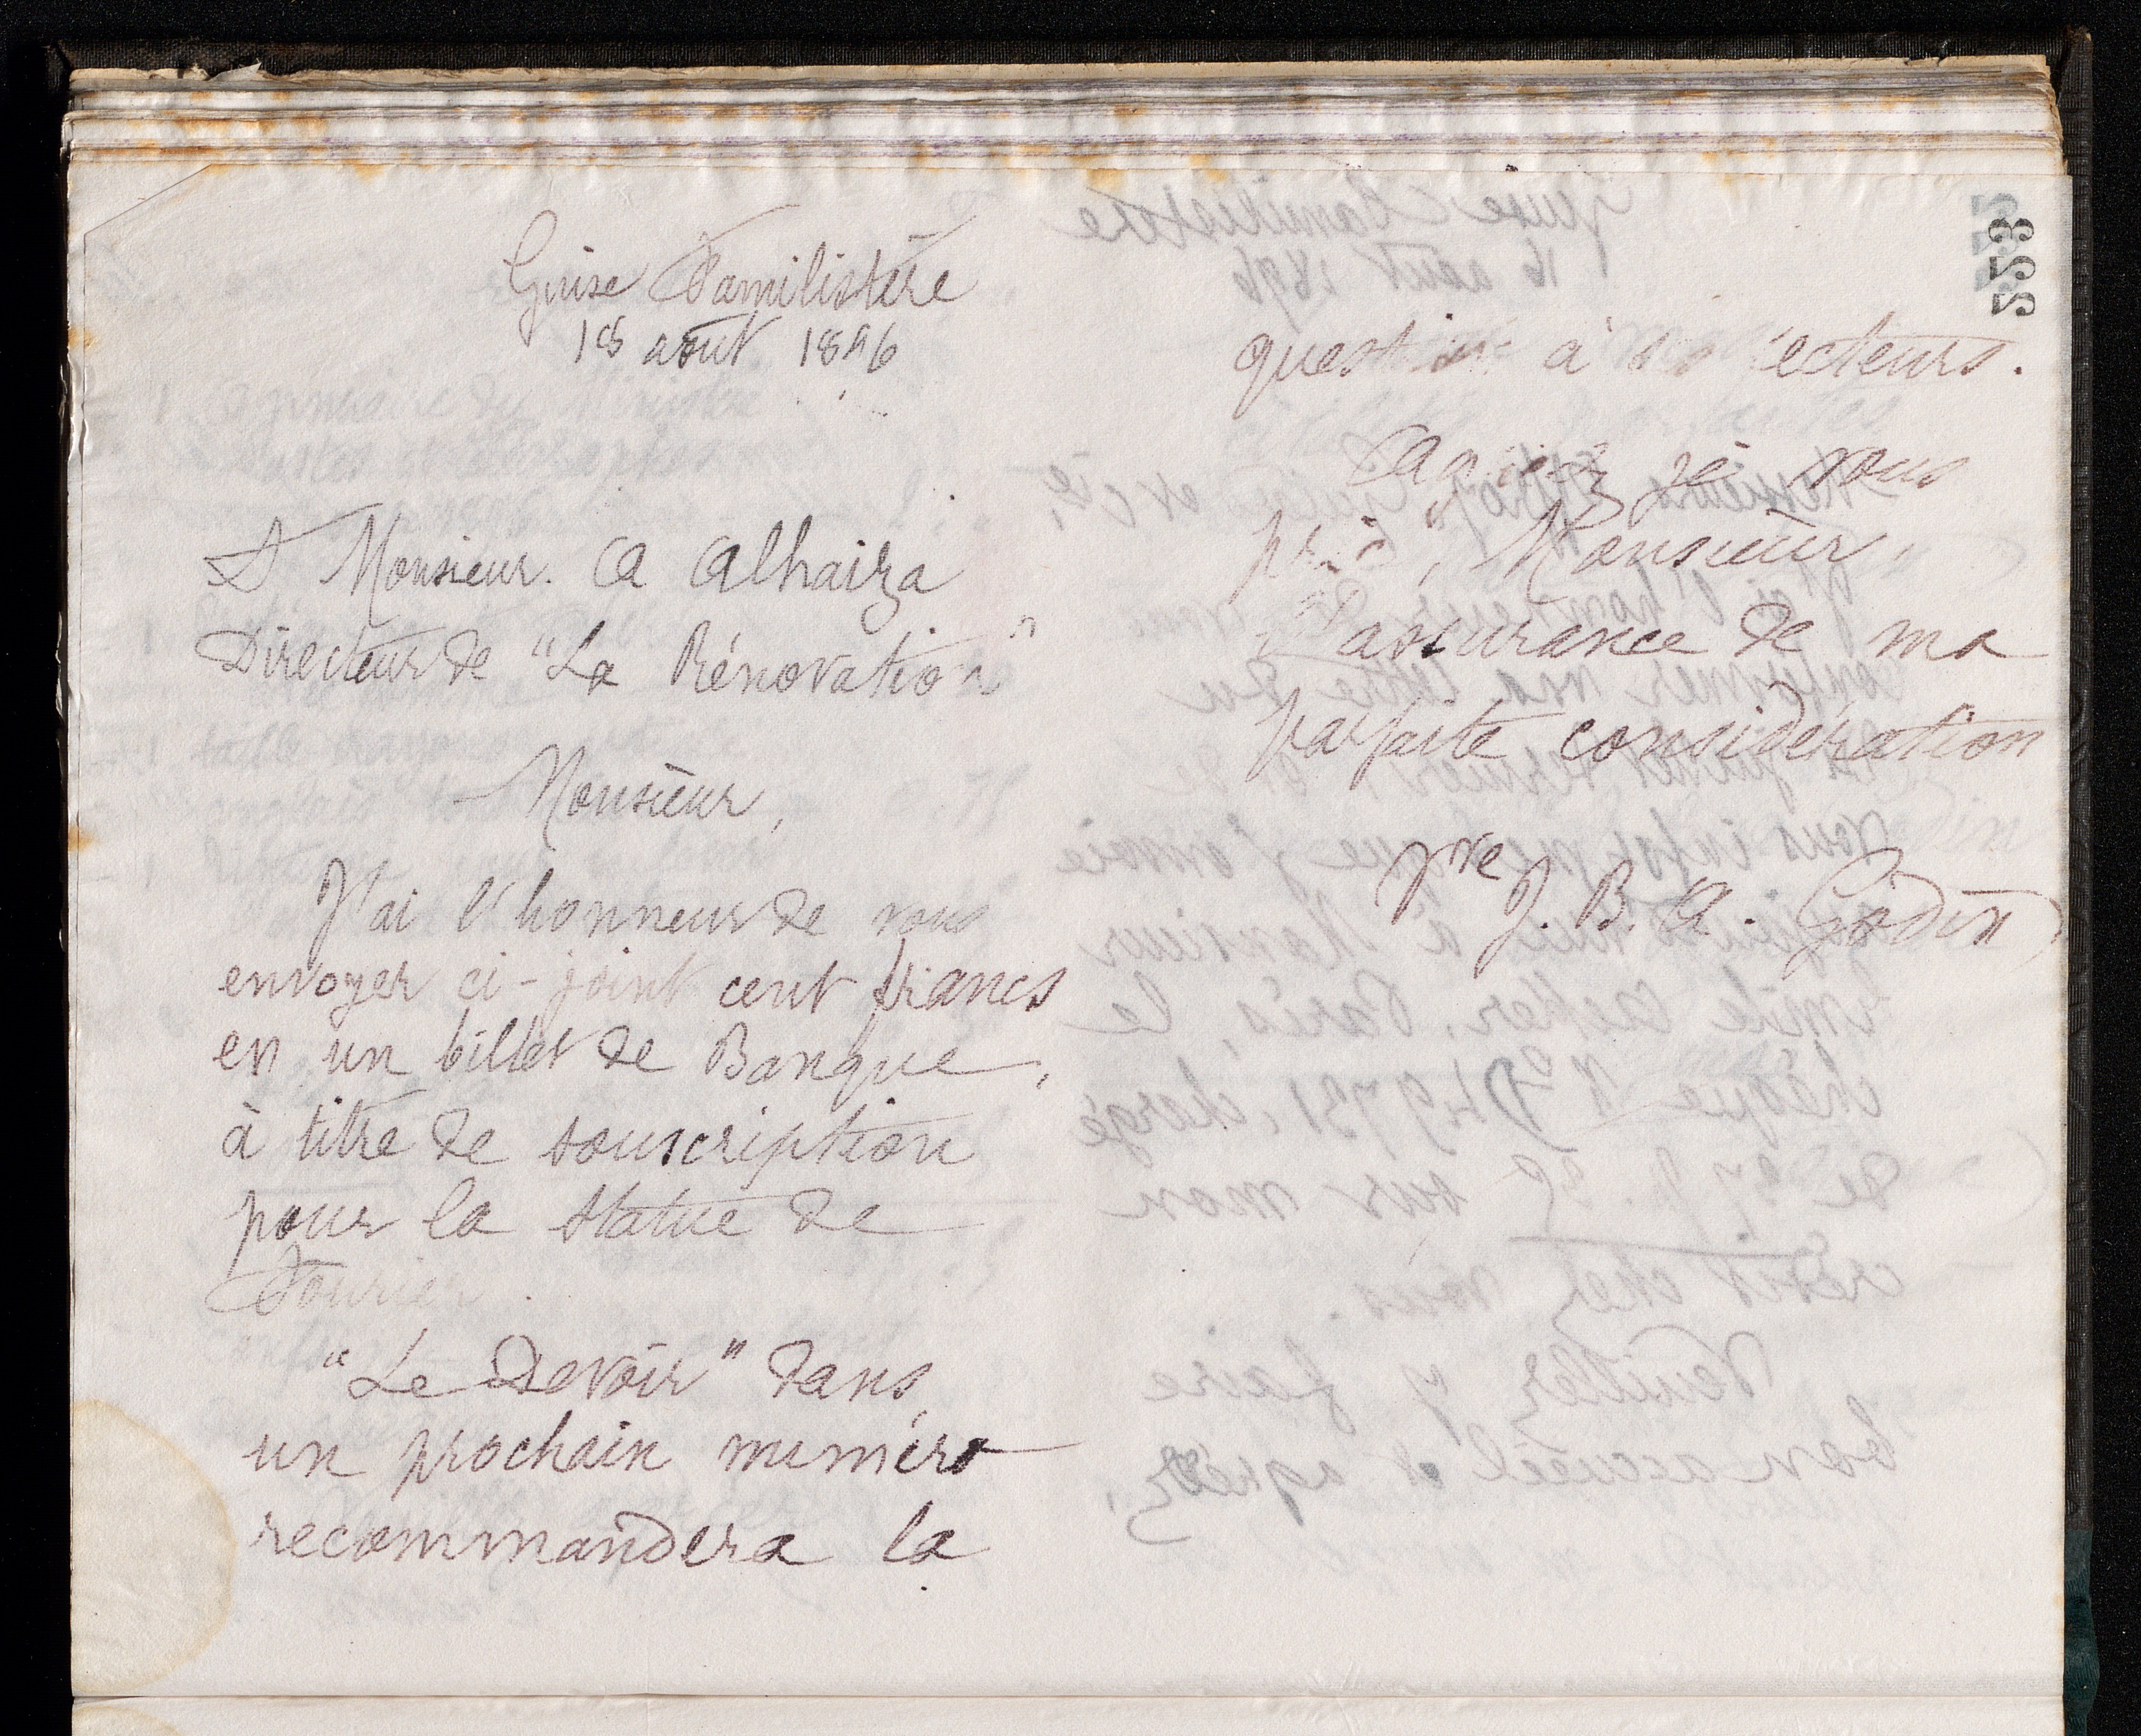 Guise Familistère
18 août 1896
A Monsieur. A Alhaiza
Directeur de "La Rénovation"
Monsieur,
J'ai l'honneur de vous
envoyer ci-joint cent francs
en un billet de Banque,
à titre de souscription
pour la statue de
Fourier.
"Le Devoir" dans
un prochain numéro
recommandera la
553
question à ses lecteurs.
Agréez, je vous
prie, Monsieur,
l'assurance de ma
parfaite considération
Vve J. B. A. Godin